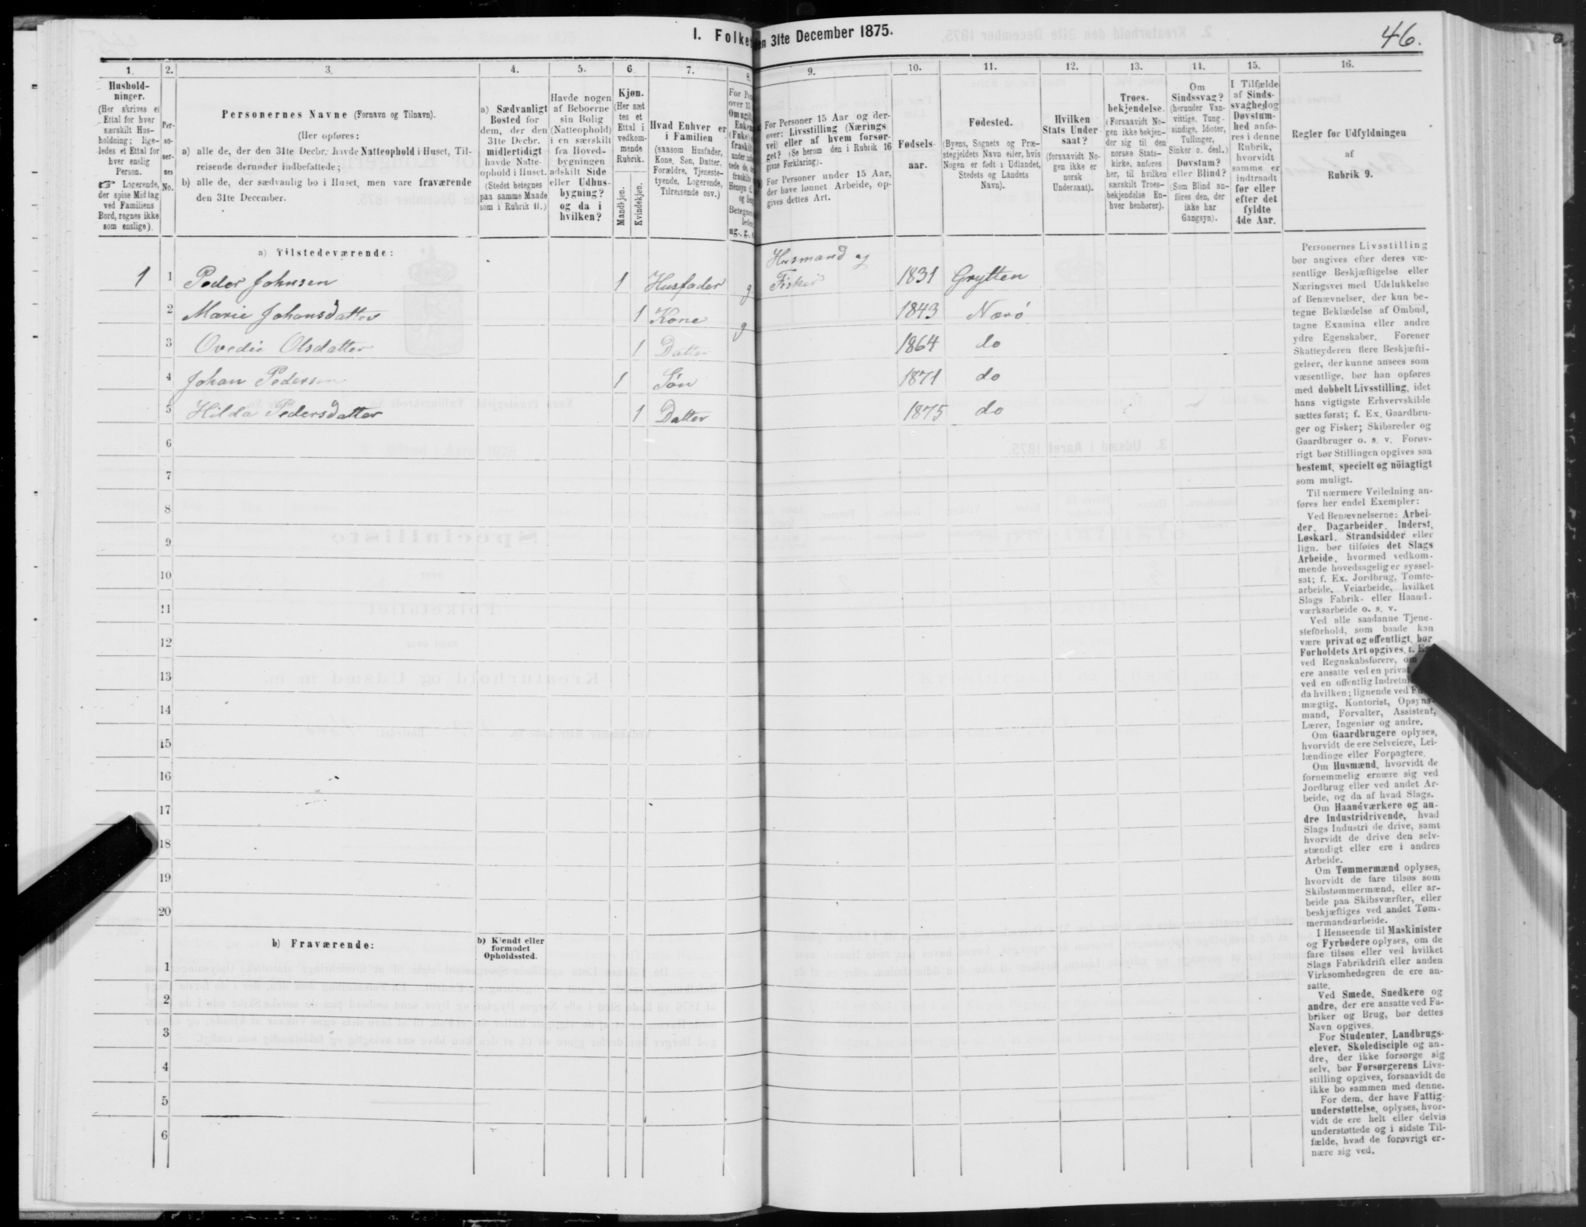 I. Folke
en 31te December 1875.
46.
1.
2.
3.
4.
5.
6
7.
8.
9.
10.
11.
12.
13.
14.
15.
16.
Hushold-
ninger.
(Her skrives et
Ettal for hver
særskilt Hus-
holdning; lige-
ledes et Ettal for
hver enslig
Person.
☞ Logerende,
der spise Middag
ved Familiens
Bord, regnes ikke
som enslige).
Per-
so-
ner-
nes
No.
Personernes Navne (Fornavn og Tilnavn).
(Her opføres:
a) alle de, der den 31te Decbr. havde Natteophold i Huset, Til-
reisende derunder indbefattede;
b) alle de, der sædvanlig bo i Huset, men vare fraværende
den 31te December.
a) Sædvanligt
Bosted for
dem, der den
31te Decbr.
midlertidigt
havde Natte-
ophold i Huset.
(Stedet betegnes
paa samme Maade
som i Rubrik 11.)
Havde nogen
af Beboerne
sin Bolig
(Natteophold)
i en særskilt
fra Hoved-
bygningen
adskilt Side
eller Udhus-
bygning?
og da i
hvilken?
Kjøn.
(Her sæt
tes et
Ettal i
vedkom-
mende
Rubrik.
Mandkjøn.
Kvindekjøn.
Hvad Enhver er
i Familien
(saasom Husfader,
Kone, Søn, Datter,
Forældre, Tjeneste-
tyende, Logerende,
Tilreisende osv.)
For Personer 15 Aar og der-
over: Livsstilling (Nærings-
vei) eller af hvem forsør-
get? (Se herom den i Rubrik 16
givne Forklaring).
For Personer under 15 Aar,
der have lønnet Arbeide, op-
gives dettes Art.
Fødsels-
aar.
Fødested.
(Byens, Sognets og Præ-
stegjeldets Navn eller, hvis
Nogen er født i Udlandet,
Stedets og Landets
Navn).
Hvilken
Stats Under-
saat?
(forsaavidt No-
gen ikke er
norsk
Undersaat).
Troes-
bekjendelse.
(Forsaavidt No-
gen ikke bekjen-
der sig til den
norske Stats-
kirke, anføres
her, til hvilken
særskilt Troes-
bekjendelse En-
hver henhører).
Om
Sindssvag?
(herunder Van-
vittige, Tung-
sindige, Idioter,
Tullinger,
Sinker o. desl.)
Døvstum?
eller Blind?
(Som Blind an-
føres den, der
ikke har
Gangsyn).
I Tilfælde
af Sinds-
svaghed og
Døvstum-
hed anfø-
res i denne
Rubrik,
hvorvidt
samme er
indtraadt
før eller
efter det
fyldte
4de Aar.
Regler for Udfyldningen
af
Rubrik 9.
a) Tilstedeværende:
1 1 Peder Johnsen 1 Husfader g Husmand og Fisker 1831 Grytten
2 Marie Johansdatter 1 Kone g 1843 Nærø
3 Ovedie Olsdatter 1 Datter 1864 do
4 Johan Pedersen 1 Søn 1871 do
5 Hilda Pedersdatter 1 Datter 1875 do
6
7
8
9
10
11
12
13
14
15
16
17
18
19
20
b) Fraværende:
b) Kjendt eller
formodet
Opholdssted.
1
2
3
4
5
6
Personernes Livsstilling
bør angives efter deres væ-
sentlige Beskjæftigelse eller
Næringsvei med Udelukkelse
af Benævnelser, der kun be-
tegne Beklædelse af Ombud,
tagne Examina eller andre
ydre Egenskaber. Forener
Skatteyderen flere Beskjæfti-
gelser, der kunne ansees som
væsentlige, bør han opføres
med dobbelt Livsstilling, idet
hans vigtigste Erhvervskilde
sættes først; f. Ex. Gaardbru-
ger og Fisker; Skibsreder og
Gaardbruger o. s. v. Forøv-
rigt bør Stillingen opgives saa
bestemt, specielt og nöiagtigt
som muligt.
Til nærmere Veiledning an-
føres her endel Exempler:
Ved Benævnelserne: Arbei-
der, Dagarbeider, Inderst,
Løskarl, Strandsidder eller
lign. bør tilføies det Slags
Arbeide, hvormed vedkom-
mende hovedsagelig er syssel-
sat; f. Ex. Jordbrug, Tomte-
arbeide, Veiarbeide, hvilket
Slags Fabrik- eller Haand-
værksarbeide o. s. v.
Ved alle saadanne Tjene-
steforhold, som baade kan
være privat og offentligt, bør
Forholdets Art opgives, f. E
ved Regnskabsførere, om
ere ansatte ved en privat
ved en offentlig Indretn
da hvilken; lignende ved
mægtig, Kontorist, Opsyns-
mand, Forvalter, Assistent,
Lærer, Ingeniør og andre.
Om Gaardbrugere oplyses,
hvorvidt de ere Selveiere, Lei-
lændinge eller Forpagtere.
Om Husmænd, hvorvidt de
fornemmelig ernære sig ved
Jordbrug eller ved andet Ar-
beide, og da af hvad Slags.
Om Haandværkere og an-
dre Industridrivende, hvad
Slags Industri de drive, samt
hvorvidt de drive den selv-
stændigt eller ere i andres
Arbeide.
Om Tømmermænd oplyses,
hvorvidt de fare tilsøs som
Skibstømmermænd, eller ar-
beide paa Skibsværfter, eller
beskjæftiges ved andet Tøm-
mermandsarbeide.
I Henseende til Maskinister
og Fyrbødere oplyses, om de
fare tilsøs eller ved hvilket
Slags Fabrikdrift eller anden
Virksomhedsgren de ere an-
satte.
Ved Smede, Snedkere og
andre, der ere ansatte ved Fa-
briker og Brug, bør dettes
Navn opgives.
For Studenter, Landbrugs-
elever, Skoledisciple og an-
dre, der ikke forsørge sig
selv, bør Forsørgerens Livs-
stilling opgives, forsaavidt de
ikke bo sammen med denne.
For dem, der have Fattig-
understøttelse, oplyses, hvor-
vidt de ere helt eller delvis
understøttede og i sidste Til-
fælde, hvad de forøvrigt er-
nære sig ved.